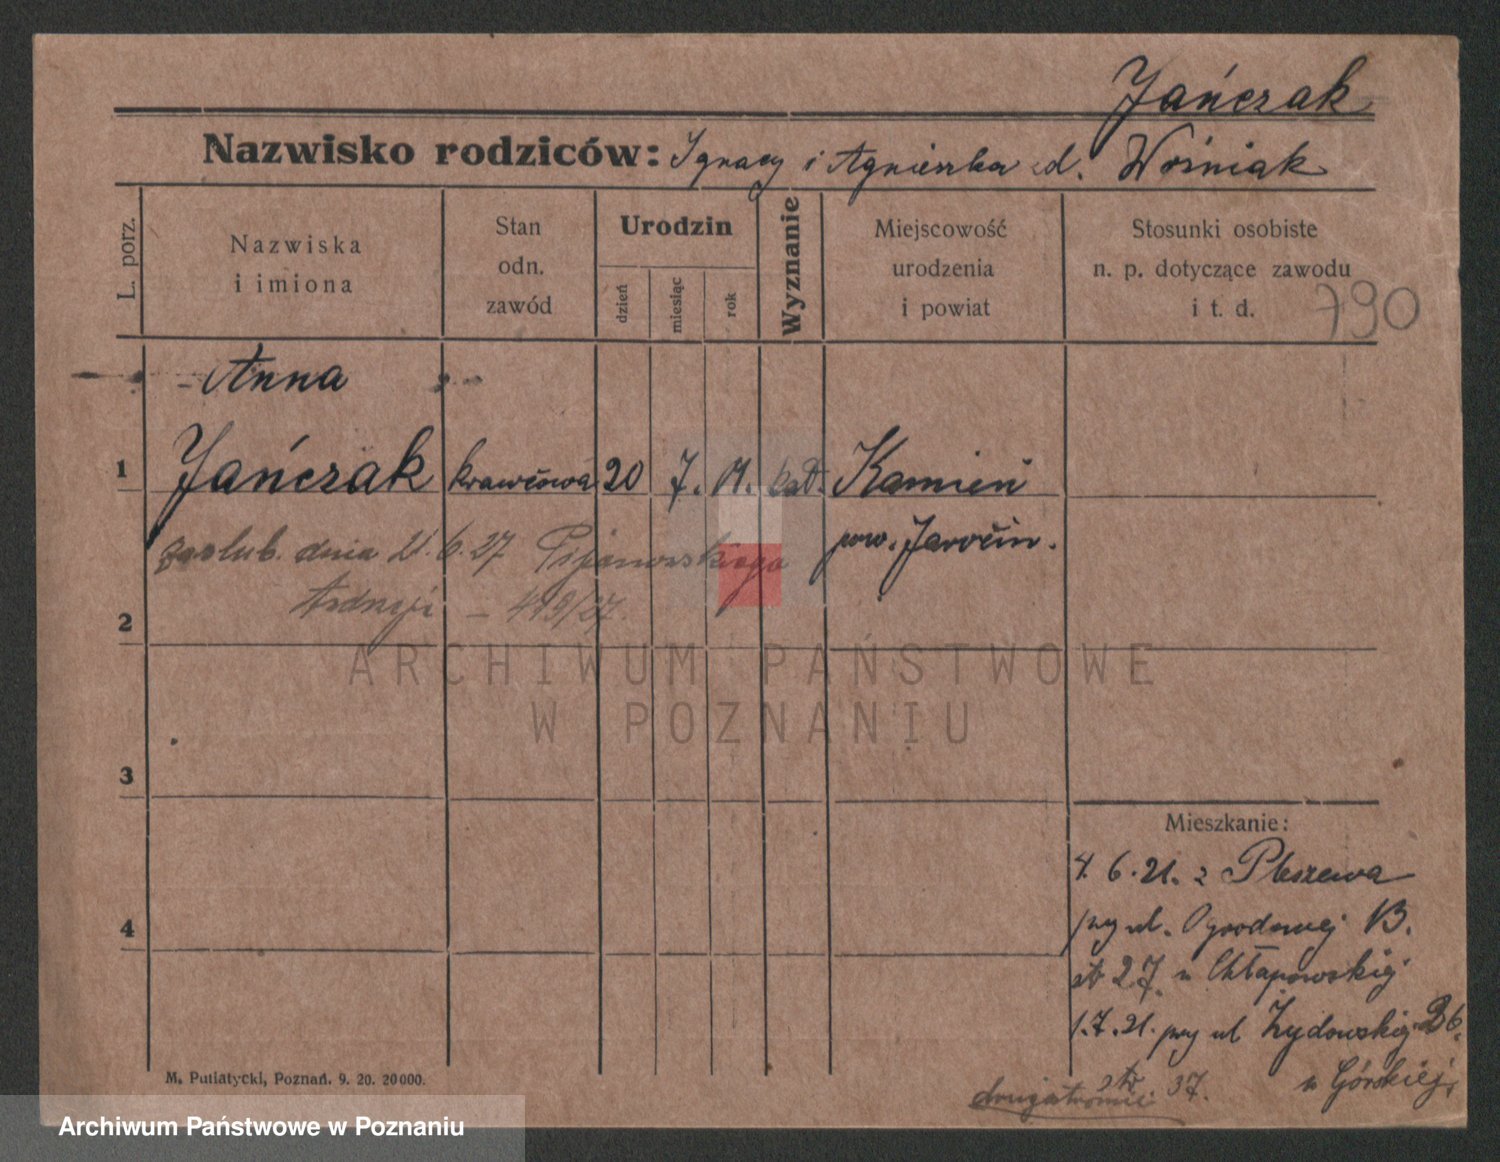 Jańczak
Nazwisko rodziców: Ignacy i Agnieszka zd. Woźniak
L. porz.
Nazwiska
i imiona
Stan
odn.
zawód
Urodzin
dzień
miesiąc
rok
Wyznanie
Miejscowość
urodzenia
i powiat
Stosunki osobiste
n. p. dotyczące zawodu
i t. d.
790
Anna
1 Jańczak krawcowa 20 7. 01. kat. Kamień
pow. Jarocin.
zaślub. dnia 21. 6. 27 Pijanowskiego
2 - 419/27.
3
4
Mieszkanie:
4. 6. 21. z Pleszewa
przy ul. Ogrodowej 13.
str 27. u Chłapowskiej
1. 7. 21. przy ul Żydowskiej 26.
u Górskiej,
str. 37.
drugostronie
M. Putiatycki, Poznań. 9. 20. 20 000.
ARCHIWUM PAŃSTWOWE
W POZNANIU
Archiwum Państwowe w Poznaniu